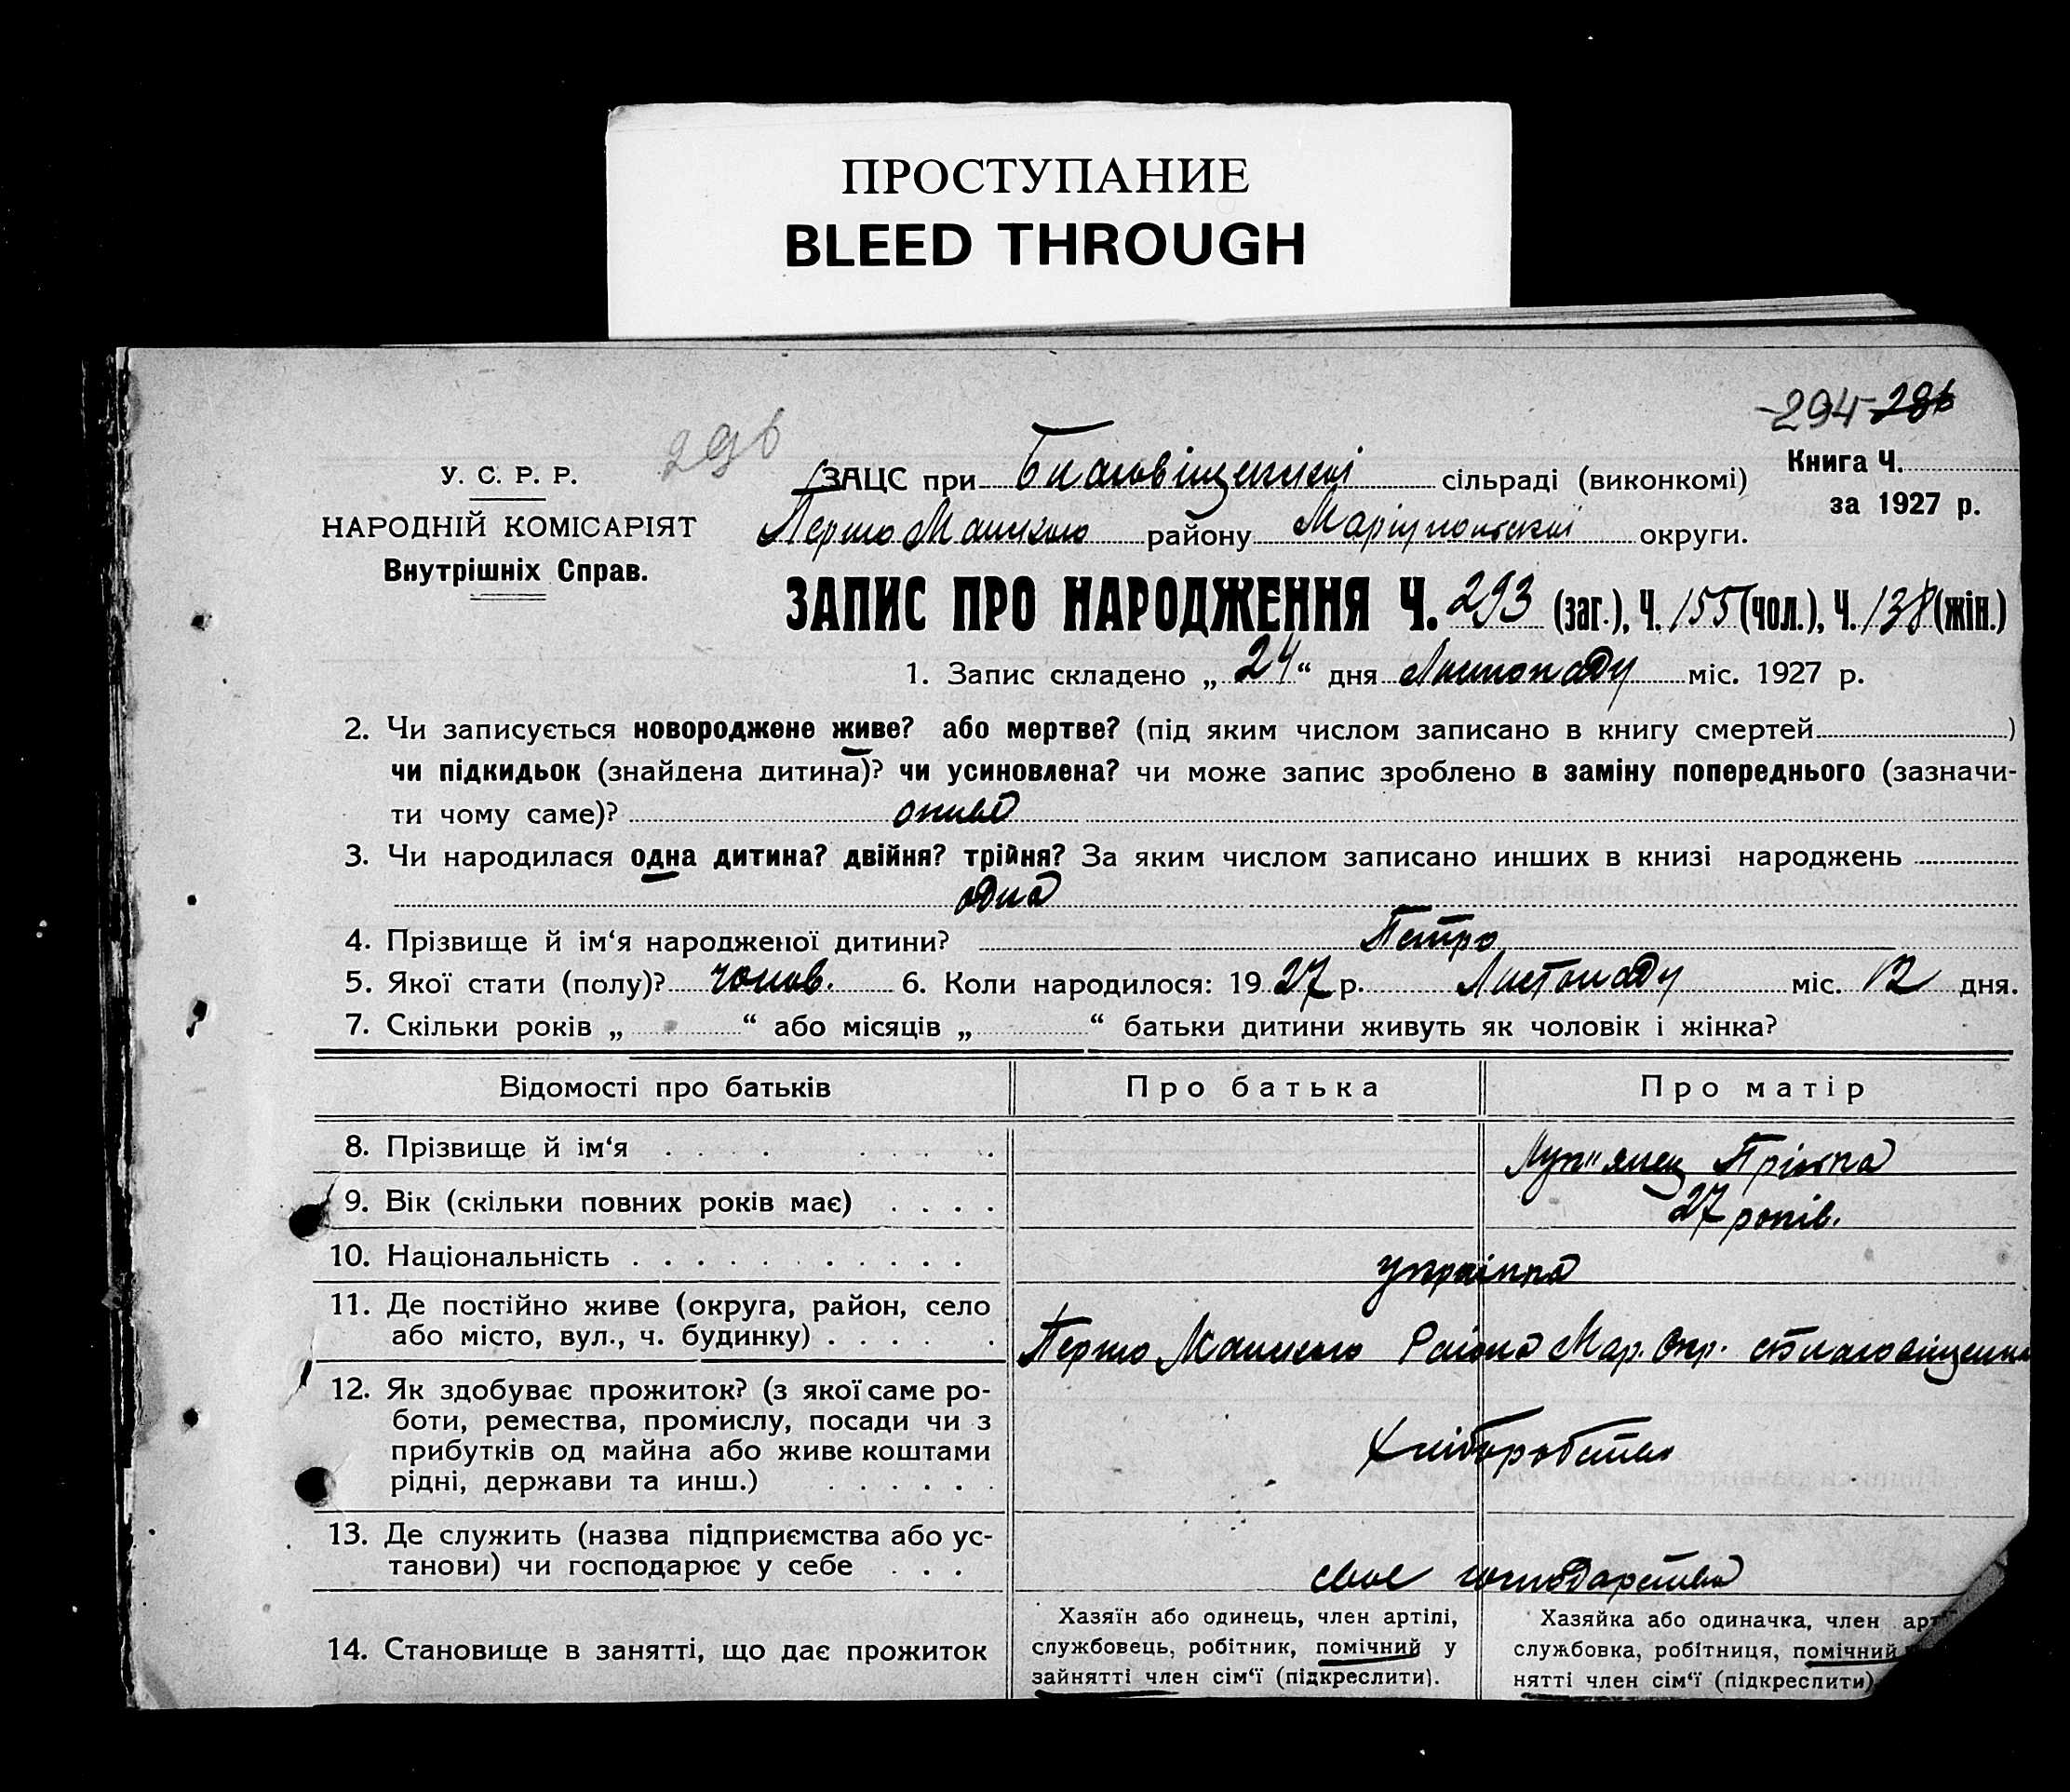 ПРОСТУПАНИЕ
BLEED THROUGH
-294- 286
296
У. С. Р. Р.
НАРОДНІЙ КОМІСАРІЯТ
Внутрішніх Справ.
ЗАЦС при Благовіщенській сільраді (виконкомі)
Книга Ч.
за 1927 р.
Першо району Маріупольської округи.
ЗАПИС ПРО НАРОДЖЕННЯ Ч. 293 (заг.), Ч. 155 (чол.), Ч. 138 (жін.)
1. Запис складено „ 24 “ дня Листопаду міс. 1927 р.
2. Чи записується новороджене живе? або мертве? (під яким числом записано в книгу смертей )
чи підкидьок (знайдена дитина)? чи усиновлена? чи може запис зроблено в заміну попереднього (зазначи-
ти чому саме)? живе
3. Чи народилася одна дитина? двійня? трійня? За яким числом записано инших в книзі народжень
одна
4. Прізвище й ім‘я народженої дитини? Петро
5. Якої стати (полу)? чолов. 6. Коли народилося: 1927 р. Листопаду міс. 12 дня.
7. Скільки років „ “ або місяців „ “ батьки дитини живуть як чоловік і жінка?
Відомості про батьків Про батька Про матір
8. Прізвище й ім‘я . . . . . . . Луп"янец
9. Вік (скільки повних років має) . . . . 27 років.
10. Національність . . . . . . . . . . . українка
11. Де постійно живе (округа, район, село
або місто, вул., ч. будинку) . . . . . Першо Району Мар. Окр.
12. Як здобуває прожиток? (з якої саме ро-
боти, ремества, промислу, посади чи з
прибутків од майна або живе коштами
рідні, держави та инш.) . . . . . . Хліборобство
13. Де служить (назва підприємства або ус-
танови) чи господарює у себе . . . своє господарство
14. Становище в занятті, що дає прожиток
Хазяїн або одинець, член артілі,
службовець, робітник, помічний у
зайнятті член сім‘ї (підкреслити).
Хазяйка або одиначка, член арт
службовка, робітниця, помічний
нятті член сім‘ї (підкреслити)